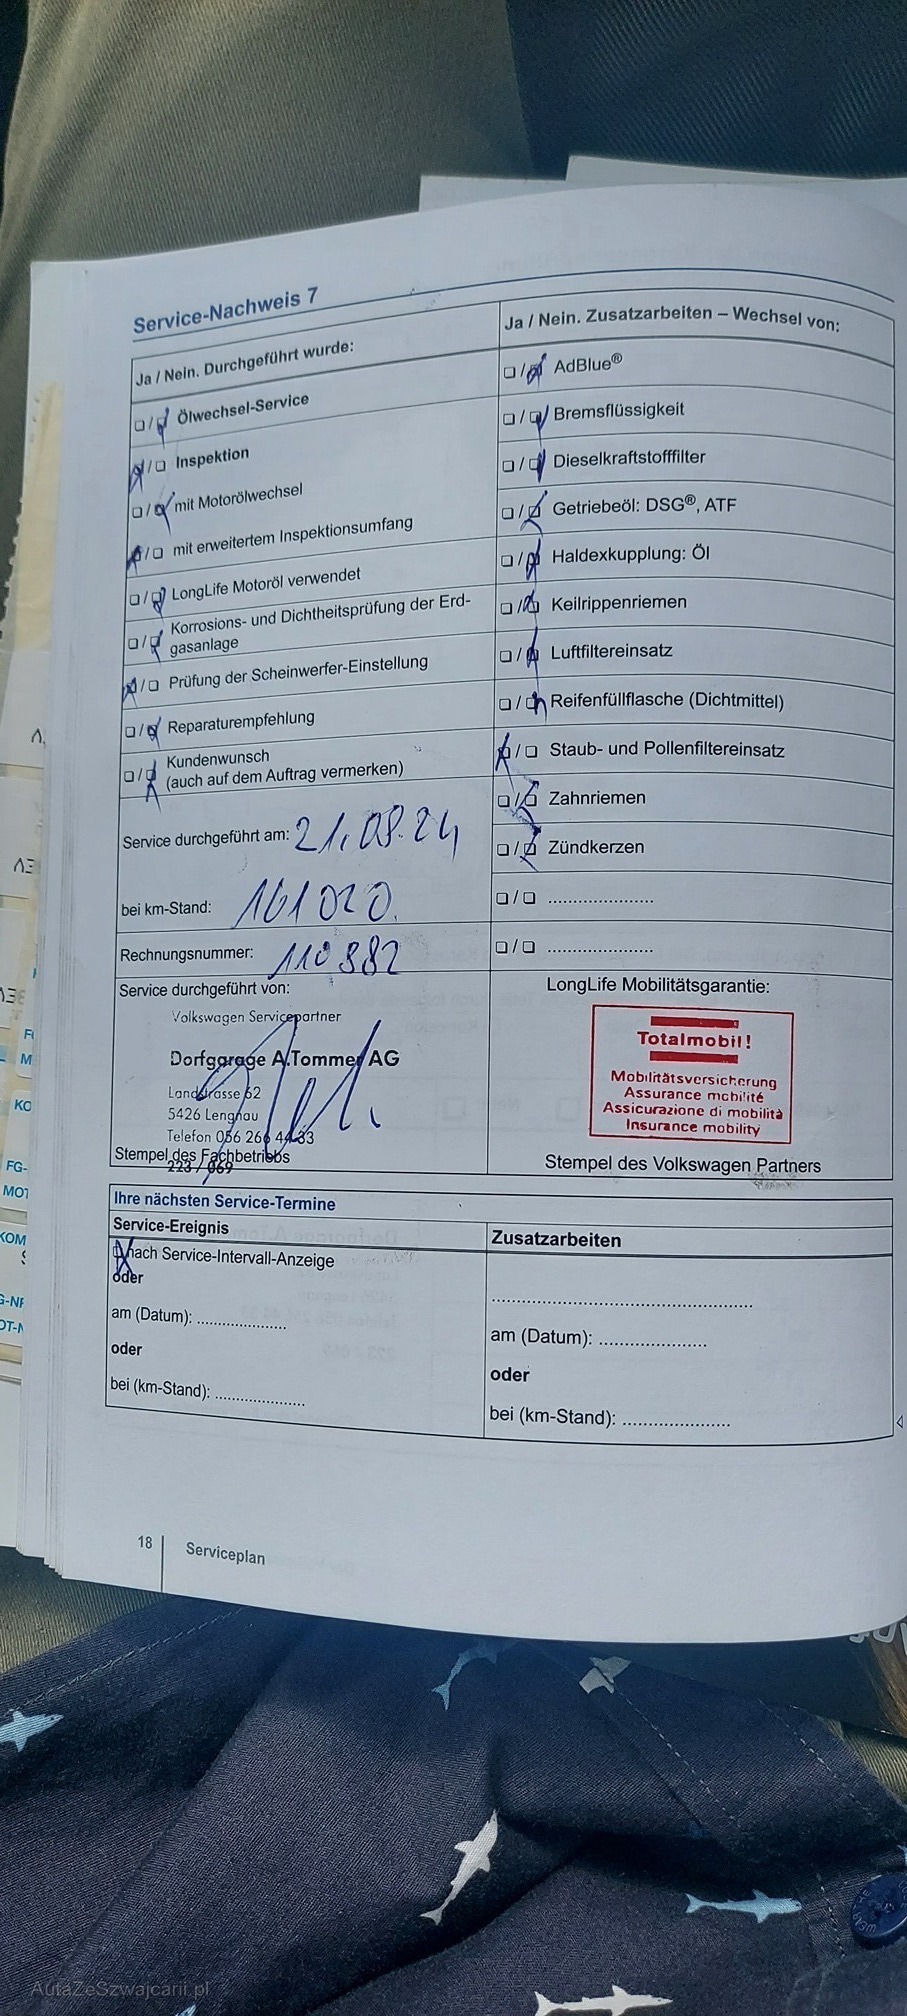 Service-Nachweis 7
Ja / Nein. Durchgeführt wurde:
Ölwechsel-Service
Inspektion
mit Motorölwechsel
mit erweitertem Inspektionsumfang
LongLife Motoröl verwendet
Korrosions- und Dichtheitsprüfung der Erd-
gasanlage
Prüfung der Scheinwerfer-Einstellung
Reparaturempfehlung
Kundenwunsch
(auch auf dem Auftrag vermerken)
Service durchgeführt am: 21.08.24
bei km-Stand: 161020.
Rechnungsnummer: 110882
Service durchgeführt von:
Volkswagen Servicepartner
Dorfgarage A.Tommer AG
Landstrasse 62
5426 Lengnau
Telefon 056 266 44 33
Stempel des Fachbetriebs
223 / 069
Ja / Nein. Zusatzarbeiten – Wechsel von:
AdBlue®
Bremsflüssigkeit
Dieselkraftstofffilter
Getriebeöl: DSG®, ATF
Haldexkupplung: Öl
Keilrippenriemen
Luftfiltereinsatz
Reifenfüllflasche (Dichtmittel)
Staub- und Pollenfiltereinsatz
Zahnriemen
Zündkerzen
LongLife Mobilitätsgarantie:
Totalmobil!
Mobilitätsversicherung
Assurance mobilité
Assicurazione di mobilità
Insurance mobility
Stempel des Volkswagen Partners
Ihre nächsten Service-Termine
Service-Ereignis
nach Service-Intervall-Anzeige
oder
am (Datum): ....................
oder
bei (km-Stand): ....................
Zusatzarbeiten
am (Datum): ....................
oder
bei (km-Stand): ....................
18
Serviceplan
AutaZeSzwajcarii.pl